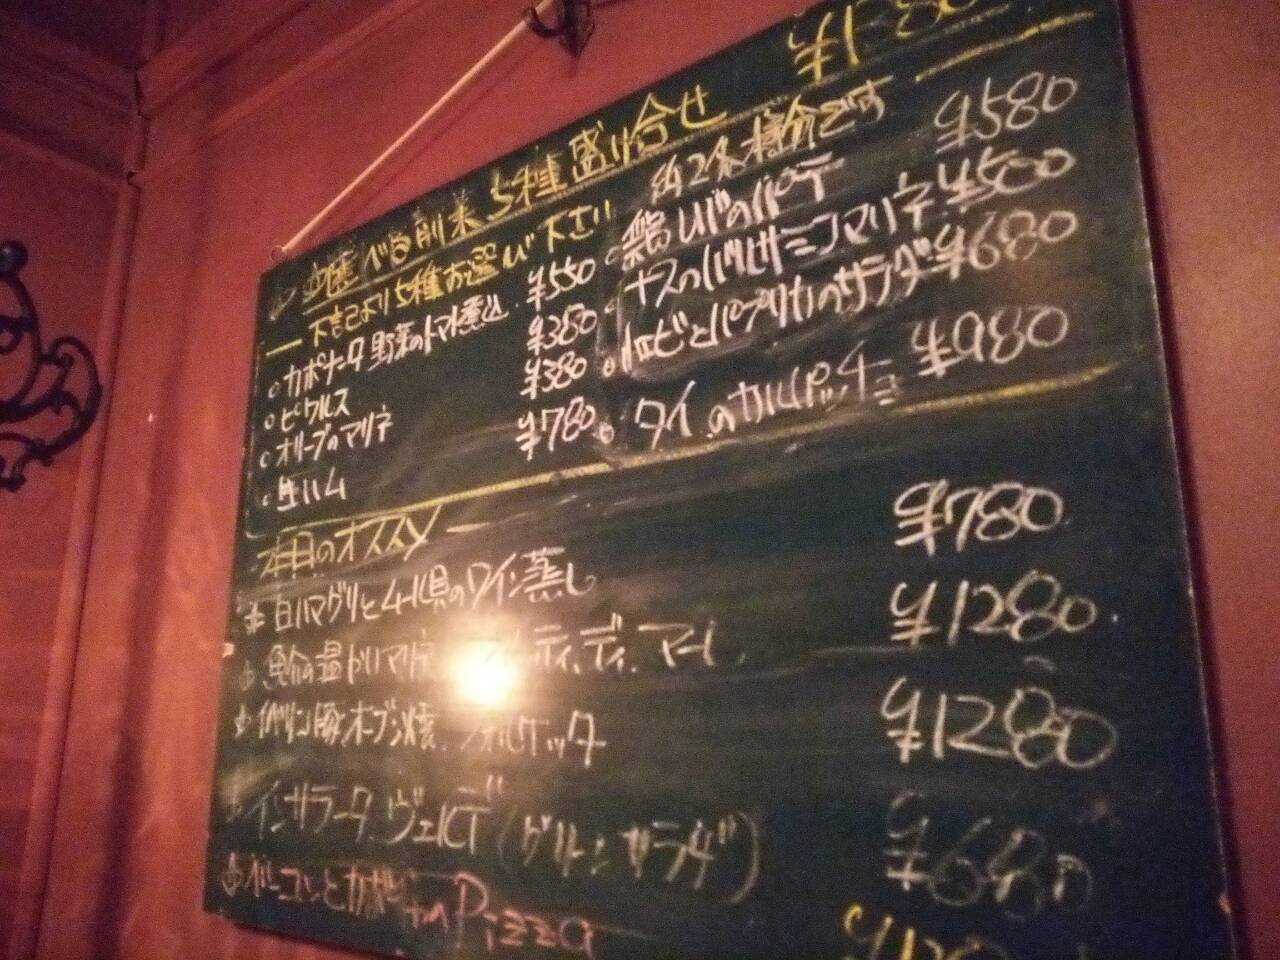 選べる前菜 5種盛り合せ ¥1380
下記より5種お選び下さい 約2名様分です
カポナータ 野菜のトマト煮込 ¥550
ピクルス ¥380
オリーブのマリネ ¥380
生ハム ¥780
鶏レバのパテ ¥580
ナスのバルサミコマリネ ¥500
小エビとパプリカのサラダ ¥680
タイのカルパッチョ ¥980
本日のオススメ
白ハマグリとムール貝のワイン蒸し ¥780
魚介の温かいマリネ ディ マーレ ¥1280
イベリコ豚オーブン焼 ¥1280
インサラータ ヴェルデ (グリーンサラダ) ¥680
ベーコンと Pizza